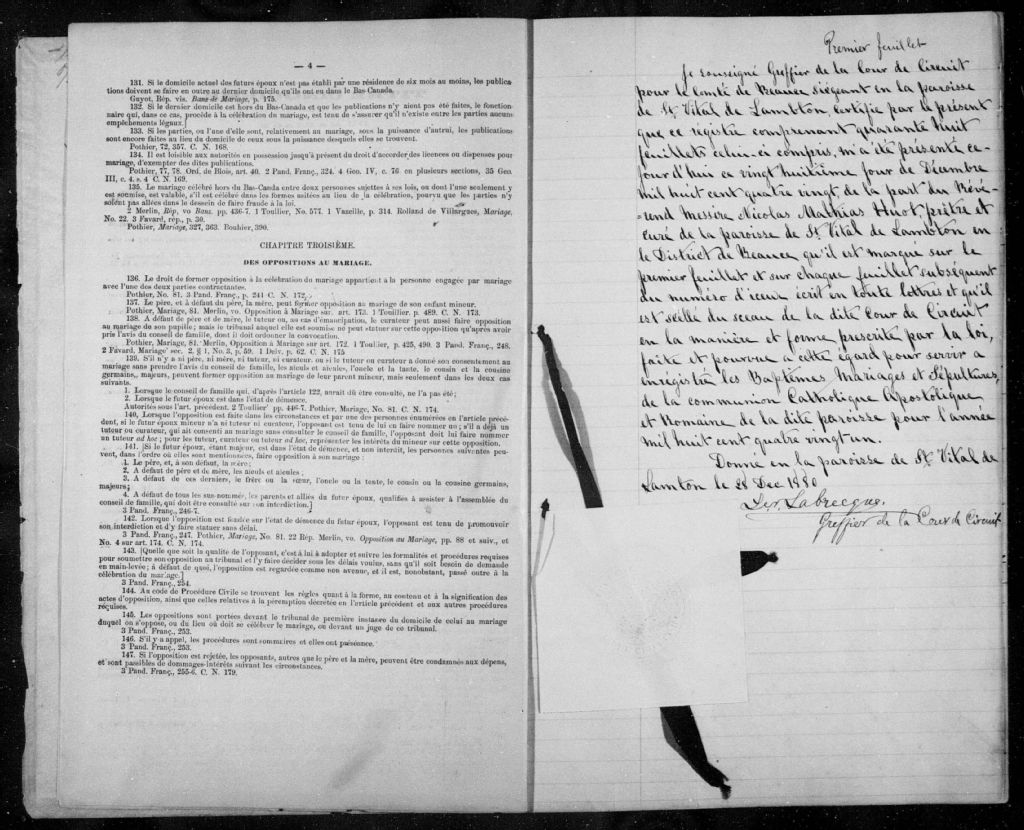 — 4 —
131. Si le domicile actuel des futurs époux n'est pas établi par une résidence de six mois au moins, les publica-
tions doivent se faire en outre au dernier domicile qu'ils ont eu dans le Bas-Canada.
Guyot, Rép. vis. Bans de Mariage, p. 175.
132. Si le dernier domicile est hors du Bas-Canada et que les publications n'y aient pas été faites, le fonction-
naire qui, dans ce cas, procède à la célébration du mariage, est tenu de s'assurer qu'il n'existe entre les parties aucuns
empêchements légaux.]
133. Si les parties, ou l'une d'elle sont, relativement au mariage, sous la puissance d'autrui, les publications
sont encore faites au lieu du domicile de ceux sous la puissance desquels elles se trouvent.
Pothier, 72, 357. C. N. 168.
134. Il est loisible aux autorités en possession jusqu'à présent du droit d'accorder des licences ou dispenses pour
mariage, d'exempter des dites publications.
Pothier, 77, 78. Ord. de Blois, art. 40. 2 Pand. Franç., 324. 4 Geo. IV, c. 76 en plusieurs sections, 35 Geo.
III, c. 4. s. 4 C. N. 169.
135. Le mariage célébré hors du Bas-Canda entre deux personnes sujettes à ses lois, ou dont l'une seulement y
est soumise, est valable, s'il est célébré dans les formes usitées au lieu de la célébration, pourvu que les parties n'y
soient pas allées dans le dessein de faire fraude à la loi.
2 Merlin, Rép, vo Bans. pp. 436-7. 1 Toullier, No. 577. 1 Vazeille, p. 314. Rolland de Villargues, Mariage,
No. 22. 3 Favard, rép., p. 30.
Pothier, Mariage, 327, 363. Bouhier, 390.
CHAPITRE TROISIÈME.
DES OPPOSITIONS AU MARIAGE.
136. Le droit de former opposition à la célébration du mariage appartient à la personne engagée par mariage
avec l'une des deux parties contractantes.
Pothier, No. 81. 3 Pand. Franç., p. 241 C. N. 172.
137. Le père, et à défaut du père, la mère, peut former opposition au mariage de son enfant mineur.
Pothier, Mariage, 81. Merlin, vo. Opposition à Mariage sur. art. 173. 1 Touillier. p. 489. C. N. 173.
138. A défaut de père et de mère, le tuteur ou, au cas d'émancipation, le curateur peut aussi faire opposition
au mariage de son pupille; mais le tribunal auquel elle est soumise ne peut statuer sur cette opposition qu'après avoir
pris l'avis du conseil de famille, dont il doit ordonner la convocation.
Pothier, Mariage, 81. Merlin, Opposition à Mariage sur art. 172. 1 Toullier, p. 425, 490. 3 Pand. Franç., 248.
2 Favard, Mariage' sec. 2. § 1, No. 3, p. 59. 1 Delv, p. 62. C. N. 175
139. S'il n'y a ni père, ni mère, ni tuteur, ni curateur, ou si le tuteur ou curateur a donné son consentement au
mariage sans prendre l'avis du conseil de famille, les aïeuls et aïeules, l'oncle et la tante, le cousin et la cousine
germains, majeurs, peuvent former opposition au mariage de leur parent mineur, mais seulement dans les deux cas
suivants.
1. Lorsque le conseil de famille qui, d'après l'article 122, aurait dû être consulté, ne l'a pas été;
2. Lorsque le futur époux est dans l'état de démence.
Autorités sous l'art. précédent. 2 Toullier' pp. 446-7. Pothier, Mariage, No. 81. C. N. 174.
140. Lorsque l'opposition est faite dans les circonstances et par une des personnes énumérées en l'article précé-
dent, si le futur époux mineur n'a ni tuteur ni curateur, l'opposant est tenu de lui en faire nommer un; s'il a déjà un
tuteur ou curateur, qui ait consenti au mariage sans consulter le conseil de famille, l'opposant doit lui faire nommer
un tuteur ad hoc; pour les tuteur, curateur ou tuteur ad hoc, représenter les intérêts du mineur sur cette opposition.
141. [Si le futur époux, étant majeur, est dans l'état de démence, et non interdit, les personnes suivantes peu-
vent, dans l'ordre où elles sont mentionnées, faire opposition à son mariage :
1. Le père, et, à son défaut, la mère;
2. A défaut de père et de mère, les aïeuls et aïeules;
3. A défaut de ces derniers, le frère ou la sœur, l'oncle ou la tente, le cousin ou la cousine germains,
majeurs;
4. A défaut de tous les sus-nommés, les parents et alliés du futur époux, qualifiés à assister à l'assemblée du
conseil de famille, qui doit être consulté sur son interdiction.]
3 Pand. Franç., 246-7.
142. Lorsque l'opposition est fondée sur l'état de démence du futur époux, l'opposant est tenu de promouvoir
son interdiction et d'y faire statuer sans délai.
3 Pand. Franç., 247. Pothier, Mariage, No. 81. 22 Rép. Merlin, vo. Opposition au Mariage, pp. 88 et suiv., et
No. 4 sur art. 174. C. N. 174.
143. [Quelle que soit la qualité de l'opposant, c'est à lui à adopter et suivre les formalités et procédures requises
pour soumettre son opposition au tribunal et l'y faire décider sous les délais voulus, sans qu'il soit besoin de demande
en main-levée; à défaut de quoi, l'opposition est regardée comme non avenue, et il est, nonobstant, passé outre à la
célébration du mariage.]
3 Pand. Franç., 254.
144. Au code de Procédure Civile se trouvent les règles quant à la forme, au contenu et à la signification des
actes d'opposition, ainsi que celles relatives à la péremption décrétée en l'article précédent et aux autres procédures
réquises.
145. Les oppositions sont portées devant le tribunal de première instance du domicile de celui au mariage
duquel on s'oppose, ou du lieu où doit se célébrer le mariage, ou devant un juge de ce tribunal.
3 Pand. Franç., 253.
146. S'il y a appel, les procédures sont sommaires et elles ont préséance.
3 Pand. Franç., 253.
147. Si l'opposition est rejetée, les opposants, autres que le père et la mère, peuvent être condamnés aux dépens,
et sont passibles de dommages-intérêts suivant les circonstances.
3 Pand. Franç., 255-6. C. N. 179.
Premier feuillet
Je soussigné Greffier de la Cour de Circuit
pour le Comté de Beauce siégeant en la paroisse
de St. Vital de Lambton, certifie par le présent
que ce régistre comprenant quarante huit
feuillets celui-ci compris, m'a été présenté ce-
jourd'huis ce vingt huitième jour de Décembre
mil huit cent quatre vingt de la part du Révé-
rend Messire Nicolas Matthias Huot, prêtre et
curé de la paroisse de St. Vital de Lambton en
le District de Beauce qu'il est marqué sur le
premier feuillet et sur chaque feuillet subséquent
du numéro d'iceux écrit en toute lettres et qu'il
est scellé du sceau de la dite Cour de Circuit
en la manière et forme prescrite par la loi,
faite et pourvue a cette égard pour servir a
enregistré les Baptêmes, Mariages et Sépultures,
de la communion Catholique Apostolique,
et Romaine de la dite paroisse pour l'année
mil huit cent quatre vingt un.
Donné en la paroisse de St. Vital de
Lamton le 28 Dec 1880
Labrecque.
Greffier de la Cour de Circuit